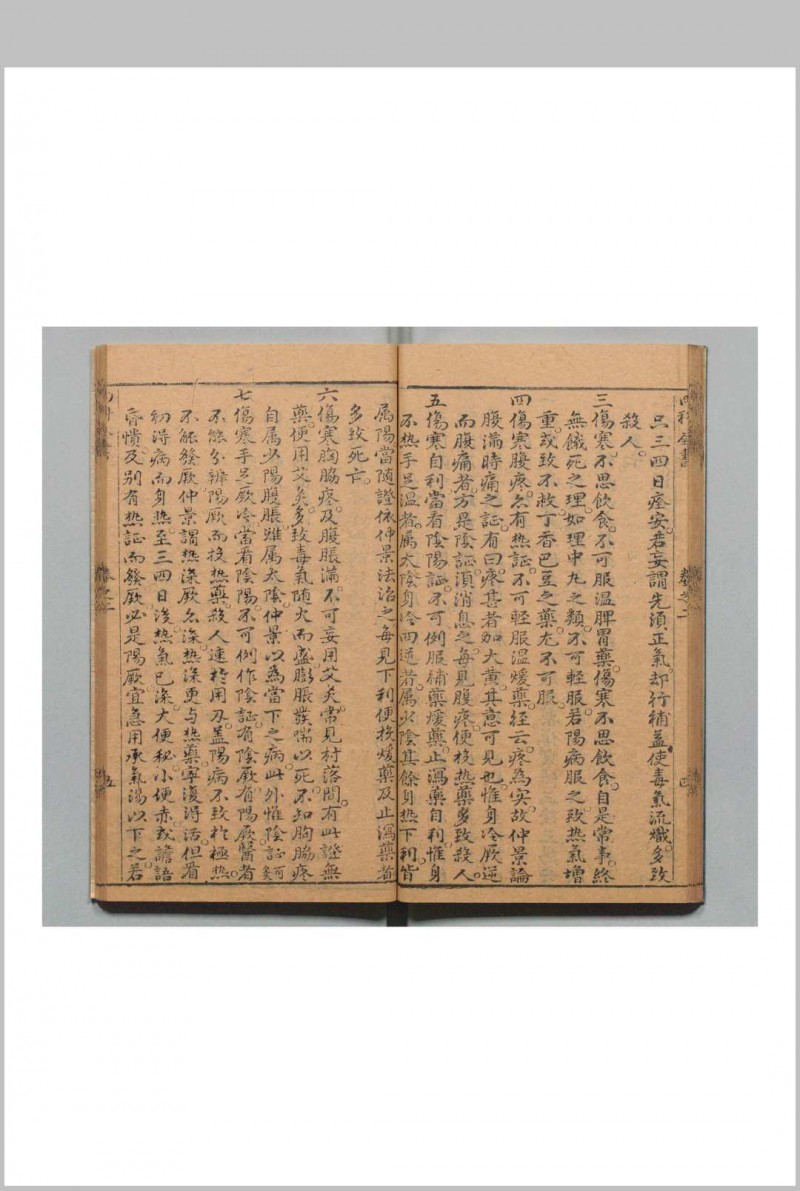 只三四日痊安若妄謂先須正氣却行補益使毒氣流熾多致
殺人
三傷寒不思飲食不可服温脾胃藥傷寒不思飲食自是常事終
無餓死之理如理中丸之類不可輕服若陽病服之致热氣增
重或致不救丁香巴豆之藥尤不可服
四傷寒腹疼亦有热証不可輕服温煖藥經云疼為实故仲景論
腹滿時痛之証有曰疼甚者加大黄其意可見也惟身冷厥逆
而腹痛者方是陰証須消息之每見腹疼便投热藥多致殺人
五傷寒自利當看陰陽証不可例服補藥煖藥止瀉藥自利惟身
不热手足温者属太陰身冷四逆者属少陰其餘身热下利皆
属陽當随證依仲景法治之每見下利便投煖藥及止瀉藥者
多致死亡
六傷寒胸脇疼及腹脹滿不可妄用艾灸常見村落間有此證無
藥便用艾灸多致毒氣随火而盛膨脹發喘以死不知胸脇疼
自属少陽腹脹雖属太陰仲景以為當下之病此外惟陰証可
七傷寒手足厥冷當看陰陽不可例作陰証有陰厥有陽厥醫者
不能分辨陽厥而投热藥殺人速於用刃盖陽病不致於極热
不能發厥仲景謂热深厥亦深热深更与热藥寧復得活但看
初得病而身热至三四日後热氣已深大便秘小便赤或譫語
昏憒及别有热証而發厥必是陽厥宜急用承氣湯以下之若
卷之二
四
卷之二
五